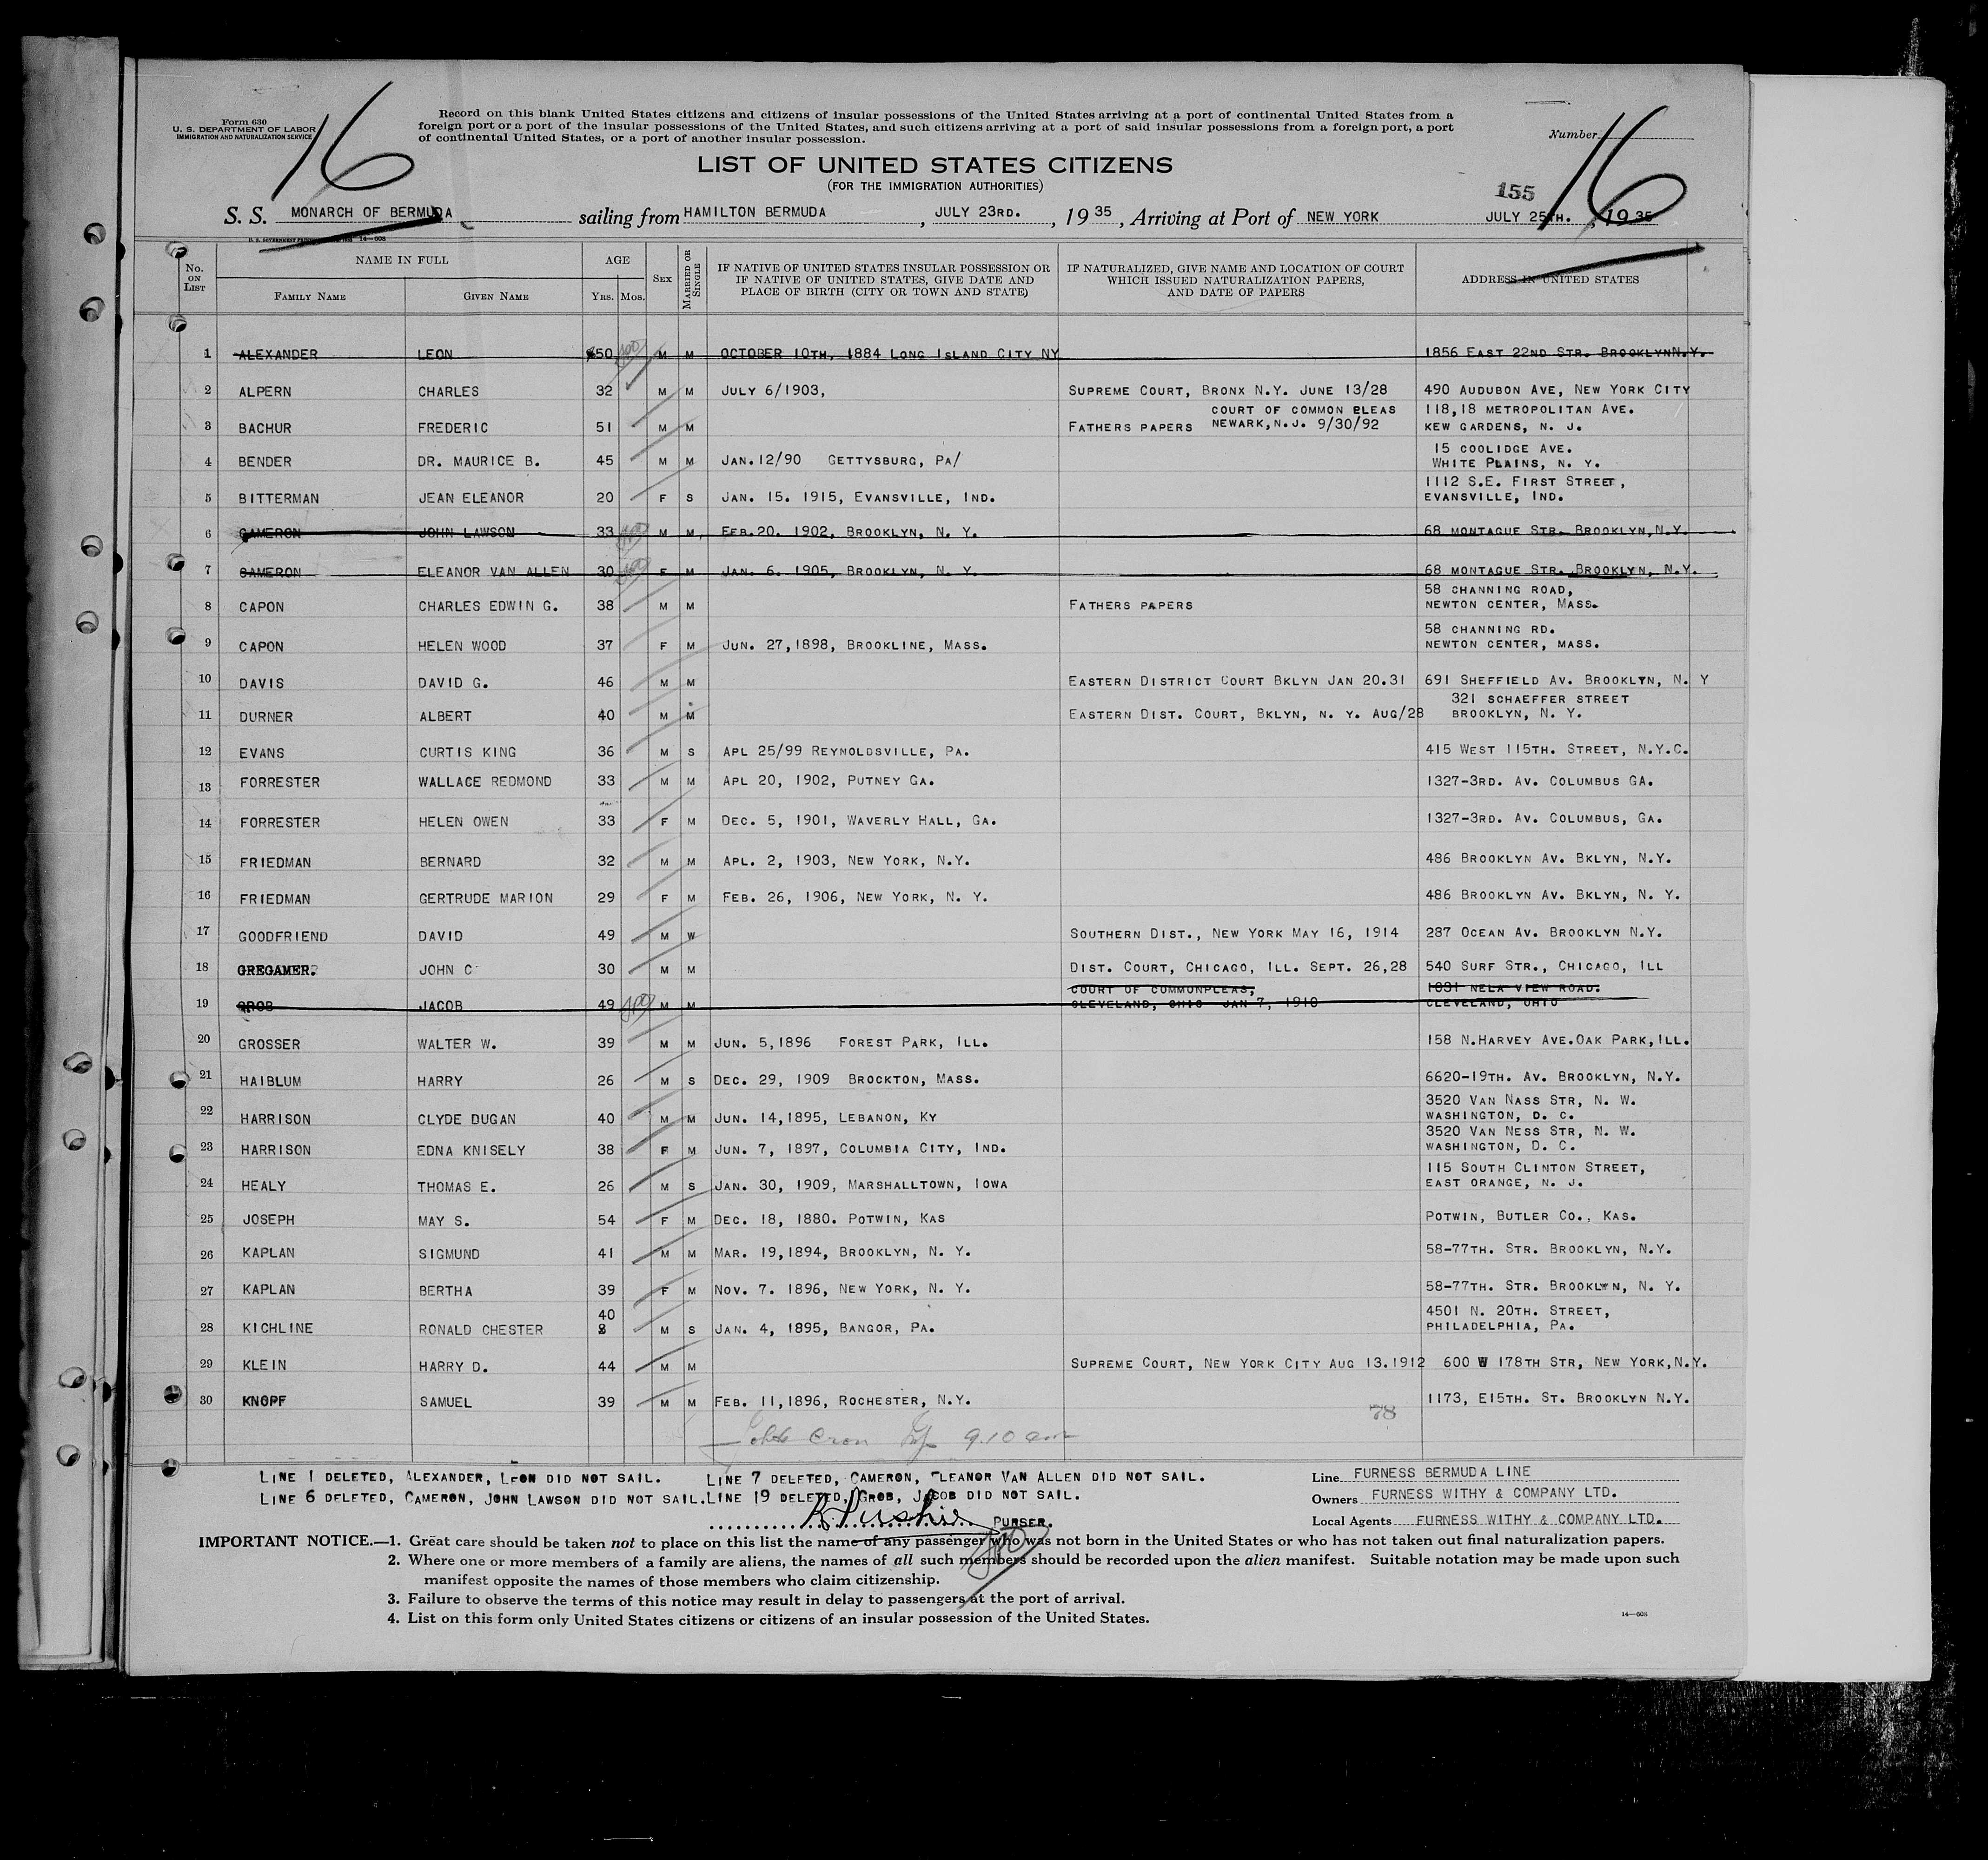 Form 630
U. S. DEPARTMENT OF LABOR
IMMIGRATION AND NATURALIZATION SERVICE
16
Record on this blank United States citizens and citizens of insular possessions of the United States arriving at a port of continental United States from a
foreign port or a port of the insular possessions of the United States, and such citizens arriving at a port of said insular possessions from a foreign port, a port
of continental United States, or a port of another insular possession.
Number
16
LIST OF UNITED STATES CITIZENS
(FOR THE IMMIGRATION AUTHORITIES)
155
S. S. MONARCH OF BERMUDA sailing from HAMILTON BERMUDA, JULY 23RD., 1935, Arriving at Port of NEW YORK JULY 25TH., 1935
No. ON LIST NAME IN FULL FAMILY NAME GIVEN NAME AGE YRS. MOS. SEX MARRIED OR SINGLE IF NATIVE OF UNITED STATES INSULAR POSSESSION OR IF NATIVE OF UNITED STATES, GIVE DATE AND PLACE OF BIRTH (CITY OR TOWN AND STATE) IF NATURALIZED, GIVE NAME AND LOCATION OF COURT WHICH ISSUED NATURALIZATION PAPERS, AND DATE OF PAPERS ADDRESS IN UNITED STATES
1 ALEXANDER LEON 50 M M OCTOBER 10TH, 1884 LONG ISLAND CITY NY 1856 EAST 22ND STR. BROOKLYNN.Y.
2 ALPERN CHARLES 32 M M JULY 6/1903, SUPREME COURT, BRONX N.Y. JUNE 13/28 490 AUDUBON AVE, NEW YORK CITY
3 BACHUR FREDERIC 51 M M FATHERS PAPERS COURT OF COMMON PLEAS NEWARK, N.J. 9/30/92 118,18 METROPOLITAN AVE. KEW GARDENS, N. J.
4 BENDER DR. MAURICE B. 45 M M JAN.12/90 GETTYSBURG, PA/ 15 COOLIDGE AVE. WHITE PLAINS, N. Y.
5 BITTERMAN JEAN ELEANOR 20 F S JAN. 15. 1915, EVANSVILLE, IND. 1112 S.E. FIRST STREET, EVANSVILLE, IND.
6 CAMERON JOHN LAWSON 33 M M FEB.20. 1902, BROOKLYN, N. Y. 68 MONTAGUE STR. BROOKLYN,N.Y.
7 CAMERON ELEANOR VAN ALLEN 30 F M JAN. 6. 1905, BROOKLYN, N. Y. 68 MONTAGUE STR. BROOKLYN, N.Y.
8 CAPON CHARLES EDWIN G. 38 M M FATHERS PAPERS 58 CHANNING ROAD, NEWTON CENTER, MASS.
9 CAPON HELEN WOOD 37 F M JUN. 27,1898, BROOKLINE, MASS. 58 CHANNING RD. NEWTON CENTER, MASS.
10 DAVIS DAVID G. 46 M M EASTERN DISTRICT COURT BKLYN JAN 20.31 691 SHEFFIELD AV. BROOKLYN, N. Y
11 DURNER ALBERT 40 M M EASTERN DIST. COURT, BKLYN, N. Y. AUG/28 321 SCHAEFFER STREET BROOKLYN, N. Y.
12 EVANS CURTIS KING 36 M S APL 25/99 REYNOLDSVILLE, PA. 415 WEST 115TH. STREET, N.Y.C.
13 FORRESTER WALLACE REDMOND 33 M M APL 20, 1902, PUTNEY GA. 1327-3RD. AV. COLUMBUS GA.
14 FORRESTER HELEN OWEN 33 F M DEC. 5, 1901, WAVERLY HALL, GA. 1327-3RD. AV. COLUMBUS, GA.
15 FRIEDMAN BERNARD 32 M M APL. 2, 1903, NEW YORK, N.Y. 486 BROOKLYN AV. BKLYN, N.Y.
16 FRIEDMAN GERTRUDE MARION 29 F M FEB. 26, 1906, NEW YORK, N. Y. 486 BROOKLYN AV. BKLYN, N. Y.
17 GOODFRIEND DAVID 49 M W SOUTHERN DIST., NEW YORK MAY 16, 1914 287 OCEAN AV. BROOKLYN N.Y.
18 GREGAMER. JOHN C 30 M M DIST. COURT, CHICAGO, ILL. SEPT. 26,28 540 SURF STR., CHICAGO, ILL
19 GROB JACOB 49 M M COURT OF COMMONPLEAS, CLEVELAND, OHIO JAN 7, 1910 1031 NELA VIEW ROAD. CLEVELAND, OHIO
20 GROSSER WALTER W. 39 M M JUN. 5,1896 FOREST PARK, ILL. 158 N.HARVEY AVE.OAK PARK,ILL.
21 HAIBLUM HARRY 26 M S DEC. 29, 1909 BROCKTON, MASS. 6620-19TH. AV. BROOKLYN, N.Y.
22 HARRISON CLYDE DUGAN 40 M M JUN. 14,1895, LEBANON, KY 3520 VAN NASS STR, N. W. WASHINGTON, D. C.
23 HARRISON EDNA KNISELY 38 F M JUN. 7, 1897, COLUMBIA CITY, IND. 3520 VAN NESS STR, N. W. WASHINGTON, D. C.
24 HEALY THOMAS E. 26 M S JAN. 30, 1909, MARSHALLTOWN, IOWA 115 SOUTH CLINTON STREET, EAST ORANGE, N. J.
25 JOSEPH MAY S. 54 F M DEC. 18, 1880. POTWIN, KAS POTWIN, BUTLER CO., KAS.
26 KAPLAN SIGMUND 41 M M MAR. 19,1894, BROOKLYN, N. Y. 58-77TH. STR. BROOKLYN, N.Y.
27 KAPLAN BERTHA 39 F M NOV. 7. 1896, NEW YORK, N. Y. 58-77TH. STR. BROOKLYN, N. Y.
28 KICHLINE RONALD CHESTER 40 M S JAN. 4, 1895, BANGOR, PA. 4501 N. 20TH. STREET, PHILADELPHIA, PA.
29 KLEIN HARRY D. 44 M M SUPREME COURT, NEW YORK CITY AUG 13.1912 600 W 178TH STR, NEW YORK,N.Y.
30 KNOPF SAMUEL 39 M M FEB. 11,1896, ROCHESTER, N.Y. 1173, E15TH. ST. BROOKLYN N.Y.
78
9.10 am
LINE 1 DELETED, ALEXANDER, LEON DID NOT SAIL. LINE 7 DELETED, CAMERON, ELEANOR VAN ALLEN DID NOT SAIL.
LINE 6 DELETED, CAMERON, JOHN LAWSON DID NOT SAIL. LINE 19 DELETED, GROB, JACOB DID NOT SAIL.
PURSER.
Line FURNESS BERMUDA LINE
Owners FURNESS WITHY & COMPANY LTD.
Local Agents FURNESS WITHY & COMPANY LTD.
IMPORTANT NOTICE.—1. Great care should be taken not to place on this list the name of any passenger who was not born in the United States or who has not taken out final naturalization papers.
2. Where one or more members of a family are aliens, the names of all such members should be recorded upon the alien manifest. Suitable notation may be made upon such
manifest opposite the names of those members who claim citizenship.
3. Failure to observe the terms of this notice may result in delay to passengers at the port of arrival.
4. List on this form only United States citizens or citizens of an insular possession of the United States.
14—608